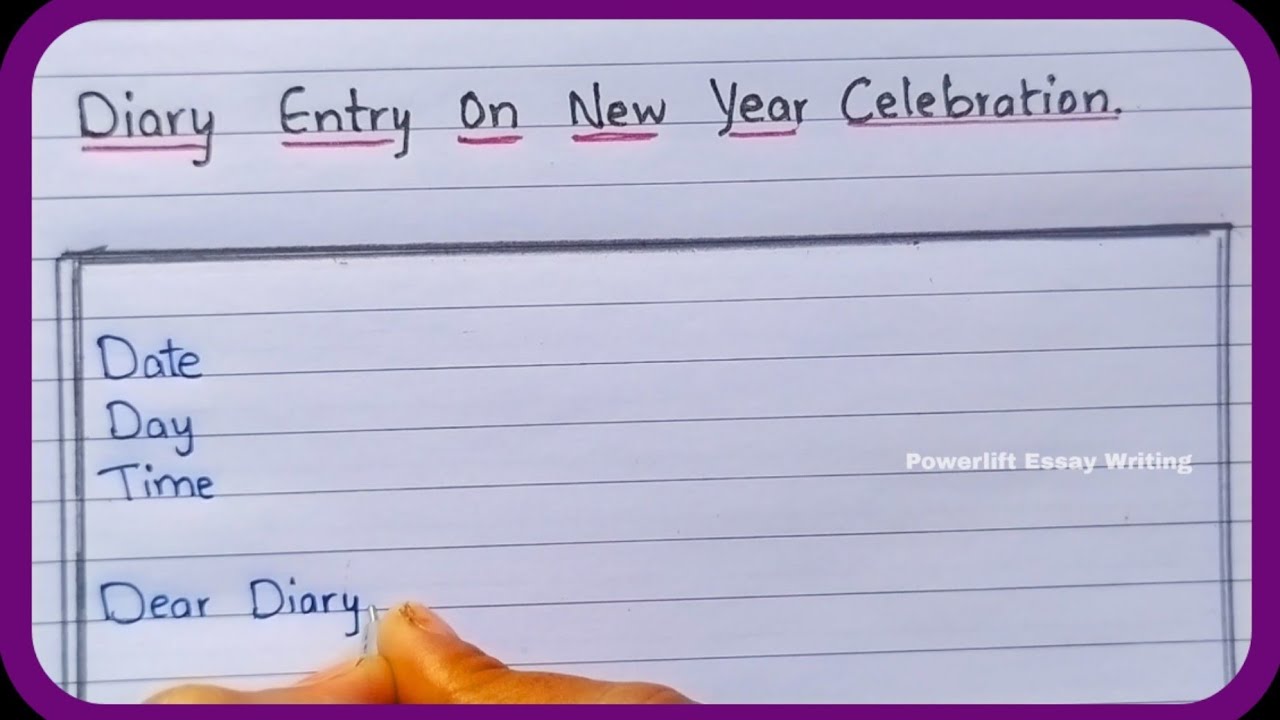 Diary Entry On New Year Celebration.
Date
Day
Powerlift Essay Writing
Time
Dear Diary,